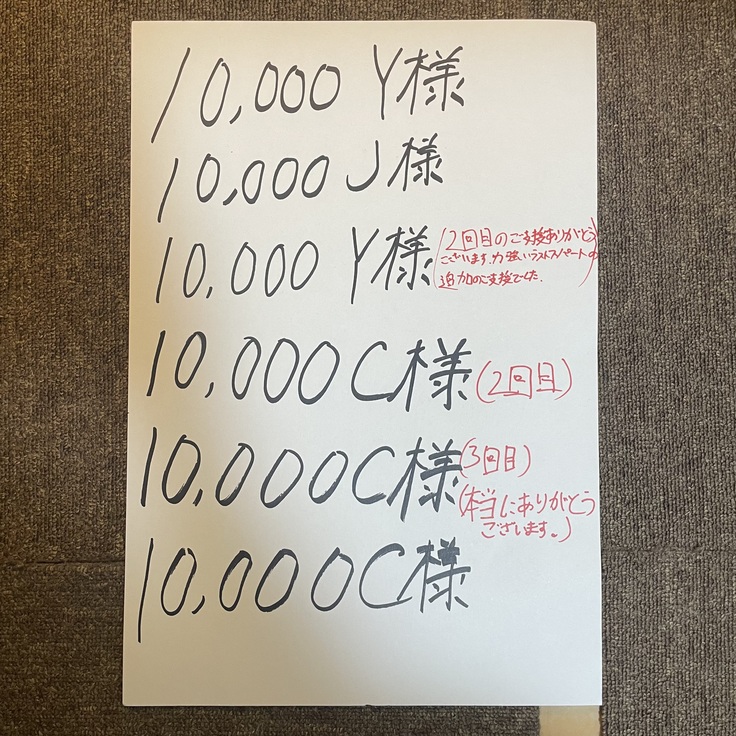 10,000 Y様
10,000 J様
10,000 Y様(2回目のご支援ありがとう
ございます。力強いラストスパートの
追加のご支援でした.
10,000 C様(2回目)
10,000 C様(3回目)
(本当にありがとう
ございます。)
10,000 C様